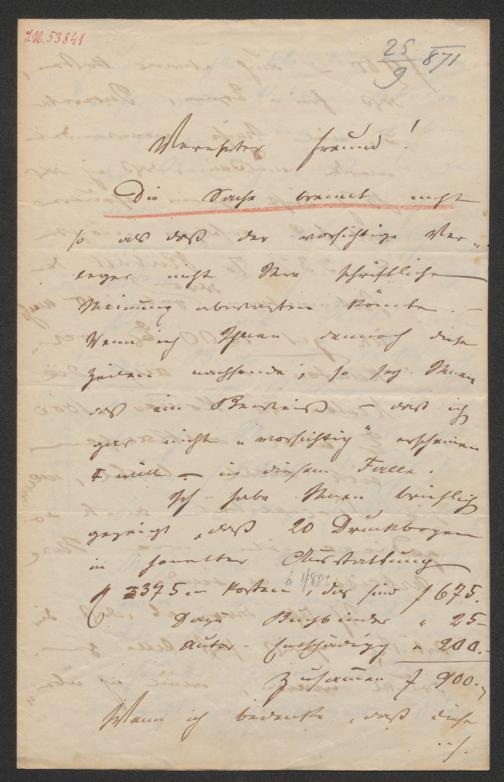 I.N. 53841
25/9 871
Verehrter Freund!
Die Sache brennt nicht
so als daß der vorsichtige Ver-
leger nicht Ihre schriftliche
Meinung abwarten könnte. –
Wenn ich Ihnen dennoch diese
Zeilen nachsende, so sey Ihnen
das ein Beweis – daß ich
gar nicht "vorsichtig" erscheinen
will – in diesem Falle.
Ich habe Ihnen brieflich
gezeigt, daß 20 Druckbogen
in honetter Ausstattung
375 Kosten, das sind f 675.
Dazu Buchbinder " 25-
Autor-Entschädigg " 200.-
Zusammen f 900.-
Wenn ich bedenke, daß diese